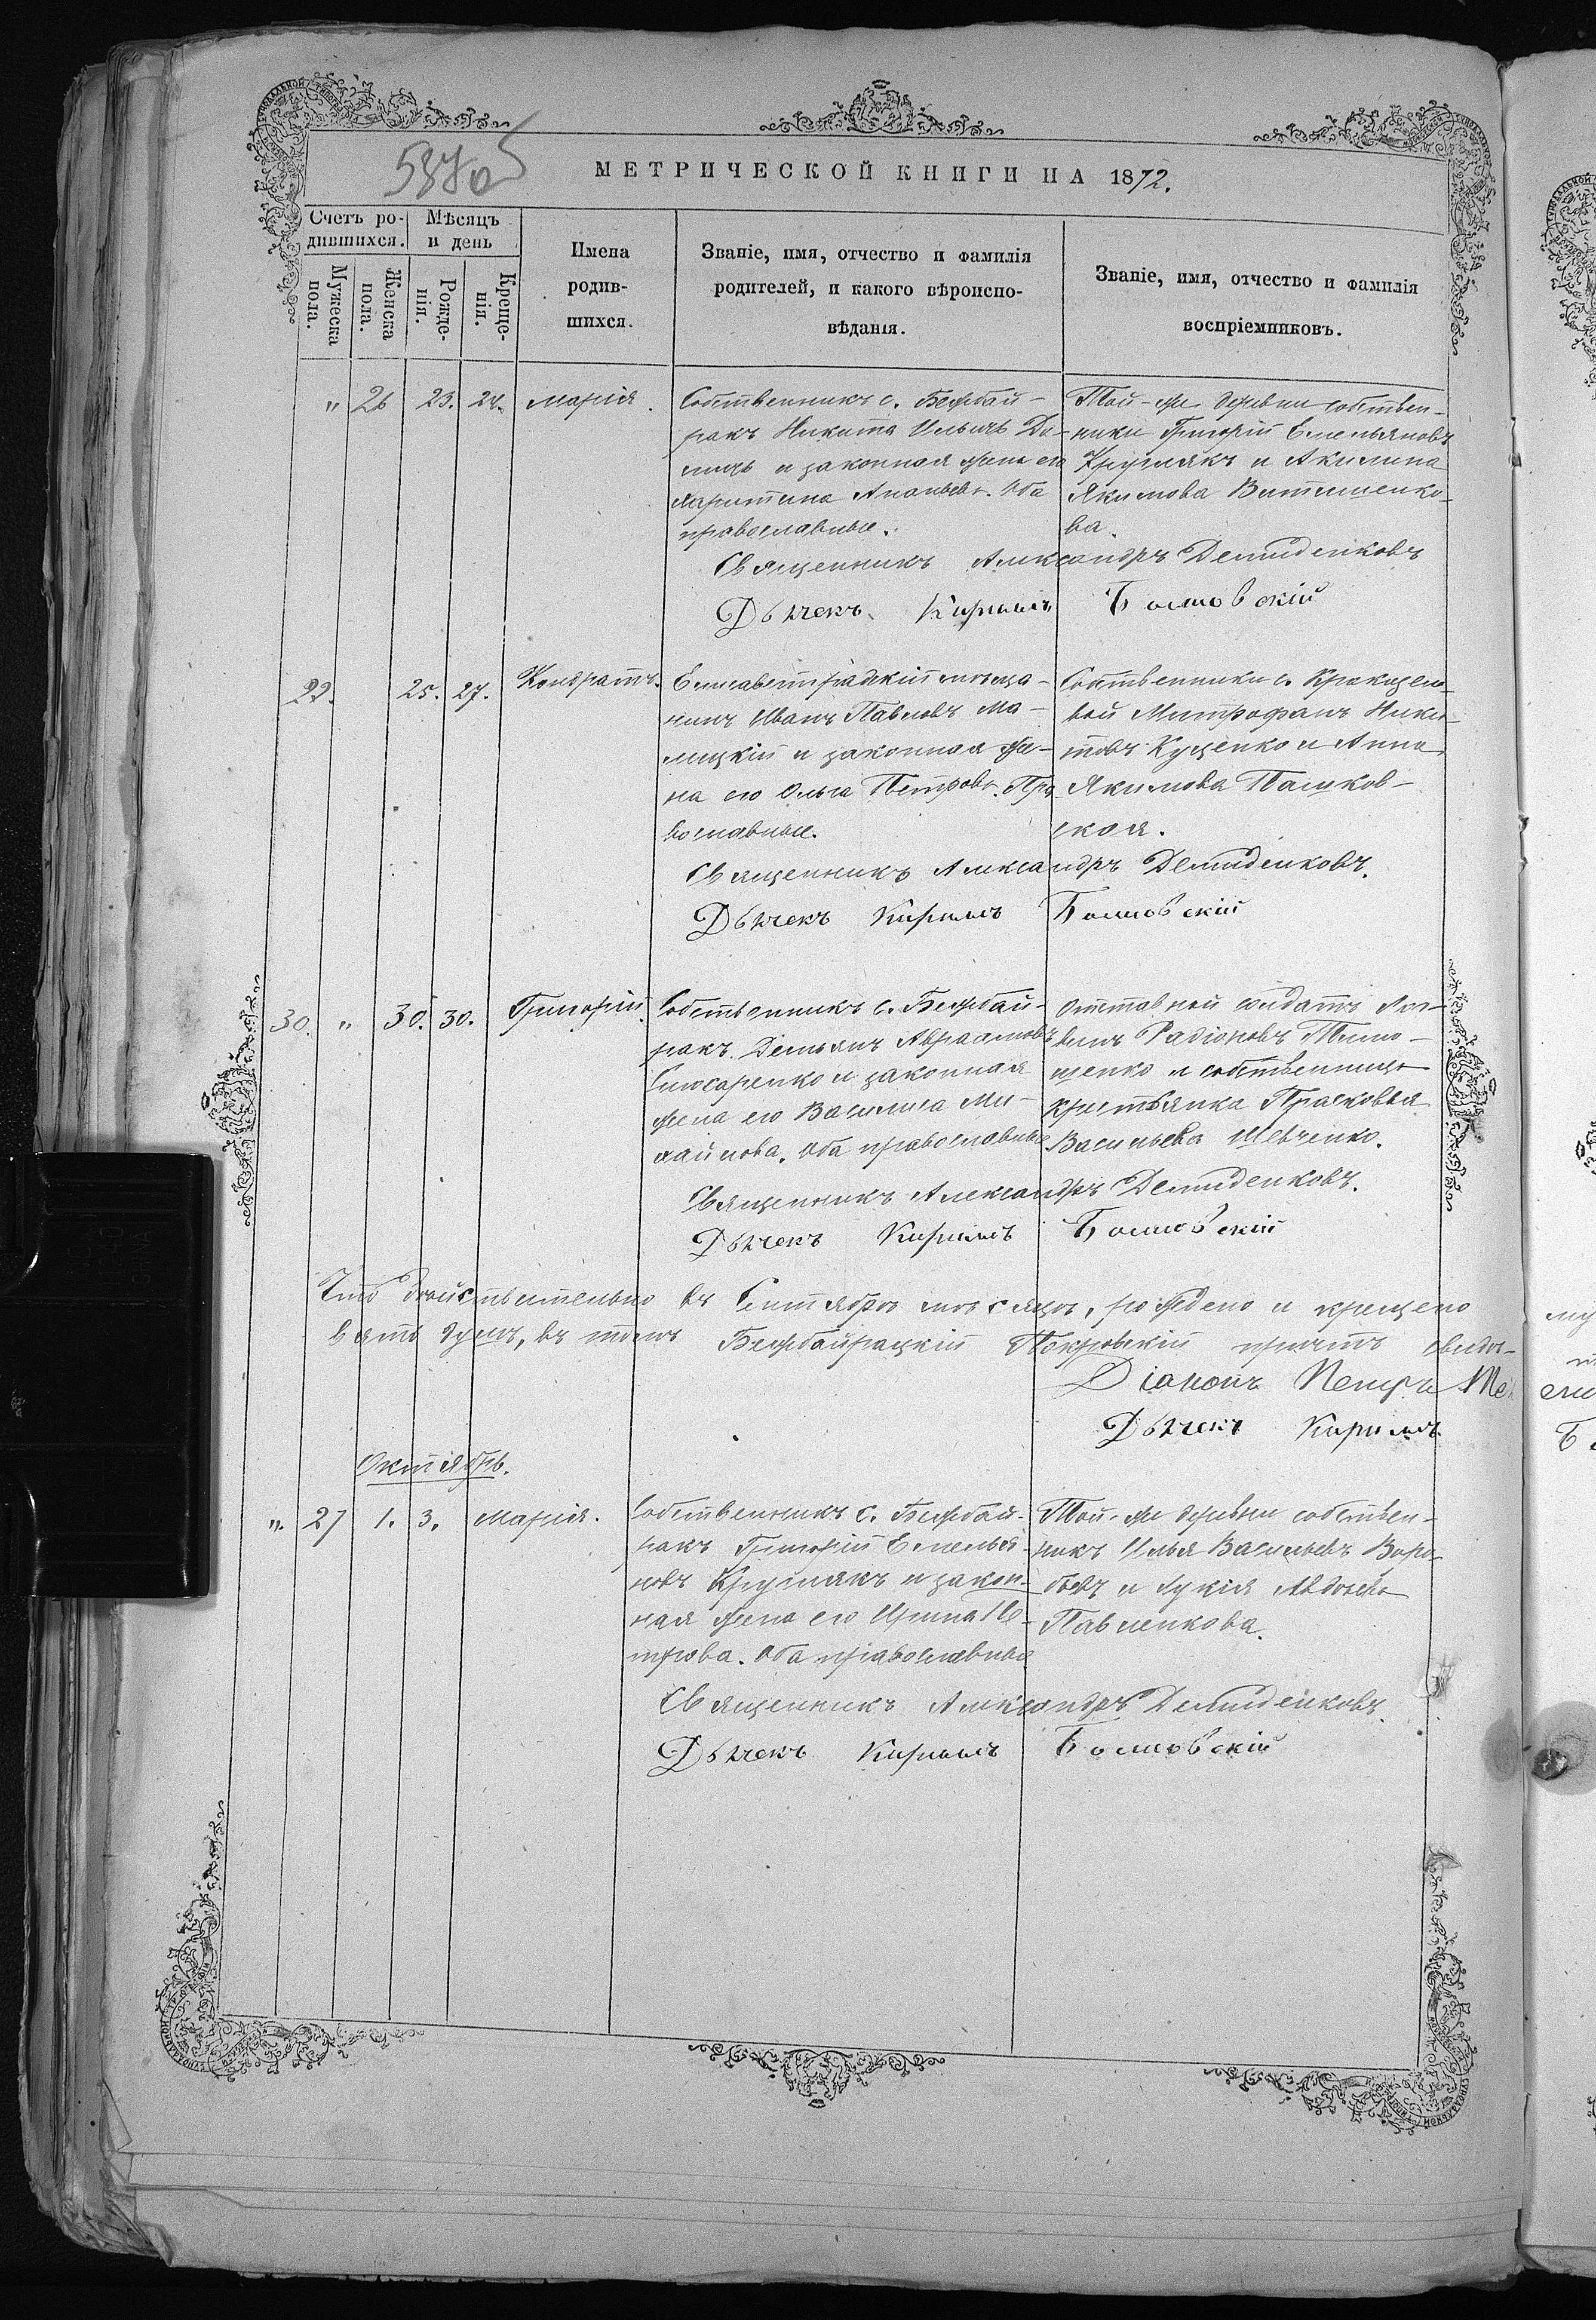 МЕТРИЧЕСКОЙ КНИГИ НА 1872.
Счетъ ро-
дившихся.
Мѣсяцъ
и день
Мужеска
пола.
Женска
пола.
Рожде-
нія.
Креще-
нія.
Имена
родив-
шихся.
Званіе, имя, отчество и фамилія
родителей, и какого вѣроиспо-
вѣданія.
Званіе, имя, отчество и фамилія
воспріемниковъ.
" 26 23. 24. Марія.
Собственникъ с. Бежбай-
ракъ Никита Ильинъ
и законная жена его
Харитина Ананьева. Оба
православные.
Той-же деревни собствен-
ники Григорій Емельяновъ
Кругликъ и Акилина
Якимова Витишенко-
ва.
Священникъ Александръ Демиденковъ
Дьячекъ Кириллъ
29. 25. 27. Кондратъ.
Елисаветградскій мѣща-
нинъ Иванъ Павловъ Ма-
лицкій и законная же-
на его Ольга Петрова. Пра
вославные.
Собственники с.
Митрофанъ Ники-
товъ Куценко и Анна
Якимова Пашков-
ская.
Священникъ Александръ Демиденковъ.
Дьячекъ Кириллъ
30. " 30. 30. Григорій.
Собственникъ с. Бежбай-
ракъ Демьянъ Авраамовъ
Слюсаренко и законная
жена его Василиса Ми-
хайлова. Оба православные
Отставной солдатъ Лог-
винъ Радіоновъ Тимо-
щенко и собственница
крестьянка Прасковья
Васильева Шевченко.
Священникъ Александръ Демиденковъ.
Дьячекъ Кириллъ
Что дѣйствительно въ Сентябрѣ мѣсяцѣ, рождено и крещено
девять душъ, въ томъ Бежбайрацкій Покровскій причтъ свидѣ-
Діаконъ Петръ
Дьячекъ Кириллъ
Октябрь.
". 27 1. 3. Марія.
Собственникъ с. Бежбай-
ракъ Григорій Емелья-
новъ Кругликъ и закон-
ная жена его Ирина Пе-
трова. Оба православные
Той-же деревни собствен-
никъ Илья Васильевъ Воро
бьевъ и Лукія
Павленкова.
Священникъ Александръ Демиденковъ.
Дьячекъ Кириллъ